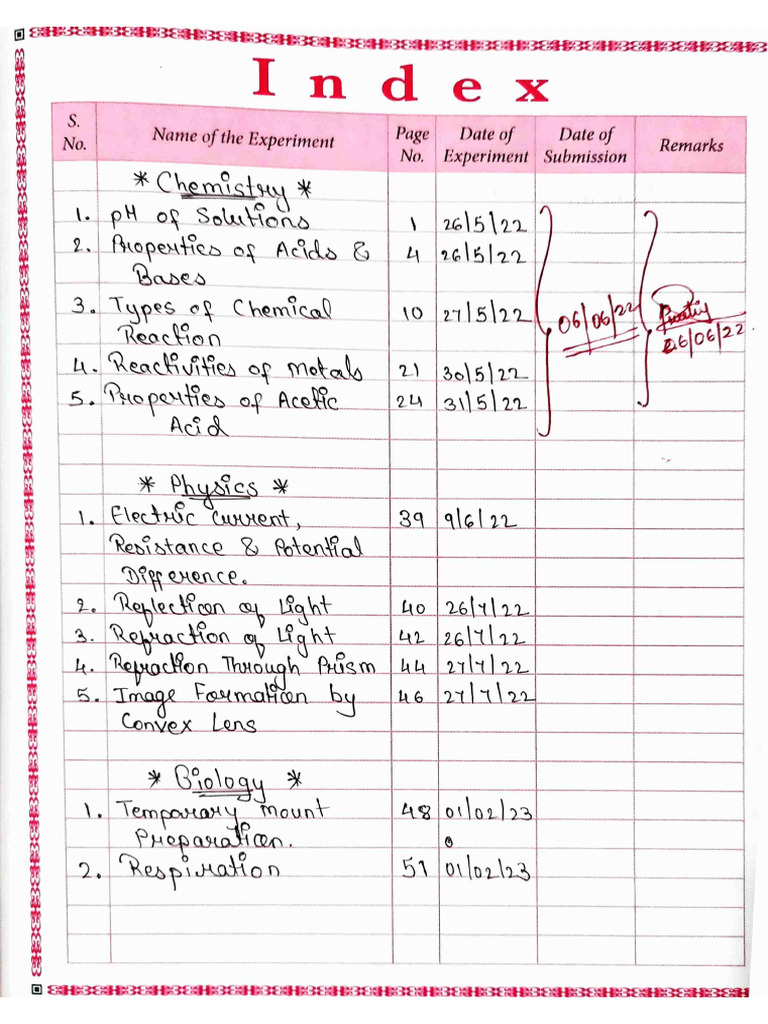 Index
S. No. Name of the Experiment Page No. Date of Experiment Date of Submission Remarks
* Chemistry *
1. pH of Solutions 1 26/5/22
2. Properties of Acids & 4 26/5/22
Bases
3. Types of Chemical 10 27/5/22 06/06/22
Reaction 06/06/22
4. Reactivities of Metals 21 30/5/22
5. Properties of Acetic 24 31/5/22
Acid
* Physics *
1. Electric Current, 39 9/6/22
Resistance & Potential
Difference.
2. Reflection of Light 40 26/7/22
3. Refraction of Light 42 26/7/22
4. Refraction Through Prism 44 27/7/22
5. Image Formation by 46 27/7/22
Convex Lens
* Biology *
1. Temporary Mount 48 01/02/23
Preparation.
2. Respiration 51 01/02/23